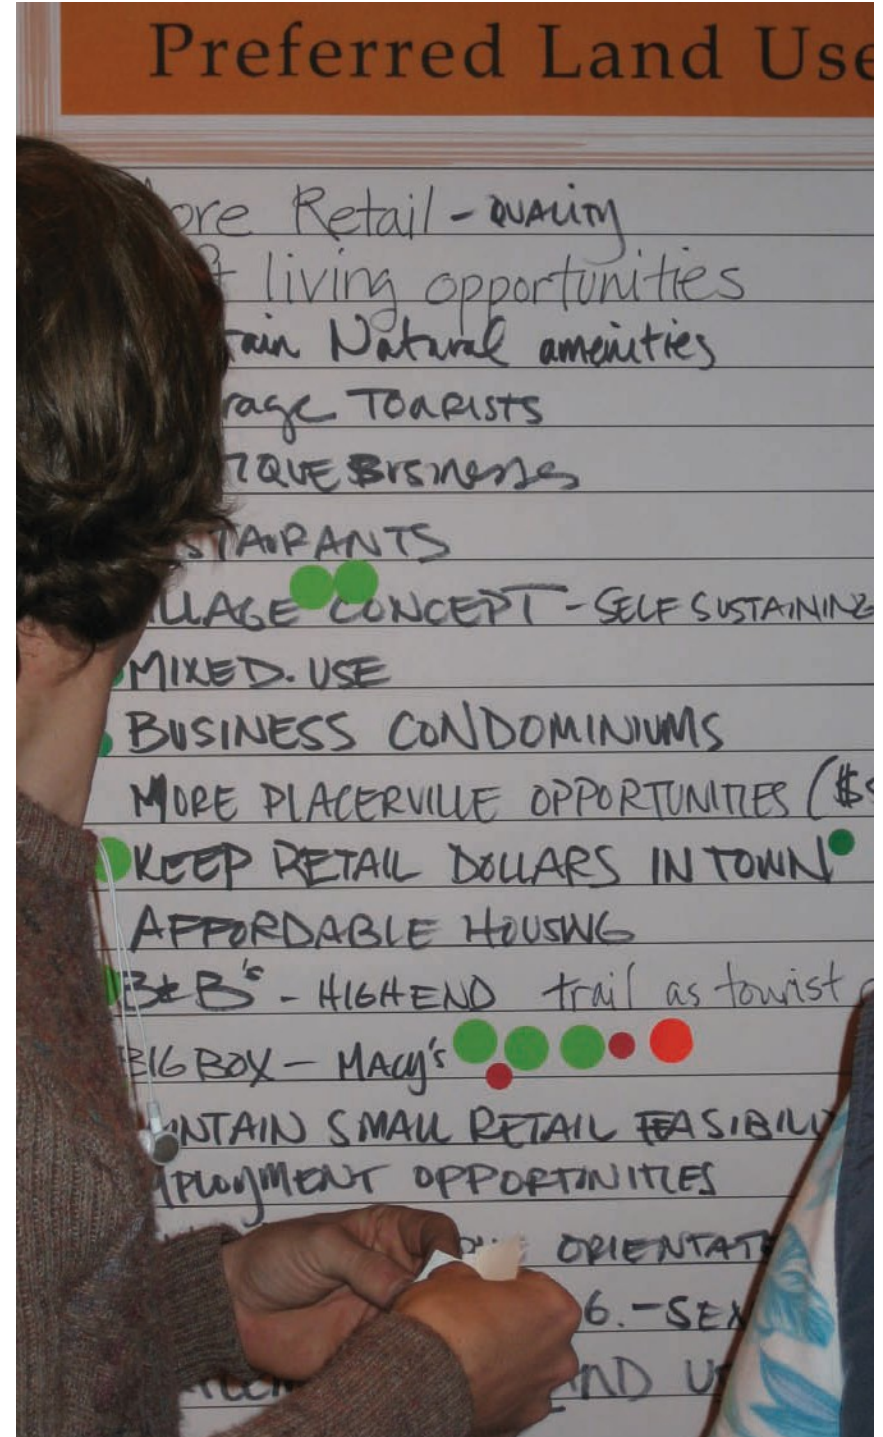 Preferred Land Use
ore Retail - QUALITY
living opportunities
tain Natural amenities
rage TOURISTS
TIQUE BUSINESSES
STAURANTS
LLAGE CONCEPT - SELF SUSTAINING
MIXED. USE
BUSINESS CONDOMINIUMS
MORE PLACERVILLE OPPORTUNITIES ($
KEEP RETAIL DOLLARS IN TOWN
AFFORDABLE HOUSING
B&B's - HIGH END trail as tourist
BIG BOX - MACY's
NTAIN SMALL RETAIL FEASIBILI
MPLOYMENT OPPORTUNITIES
ORIENTAT
6. - SEX
AND U